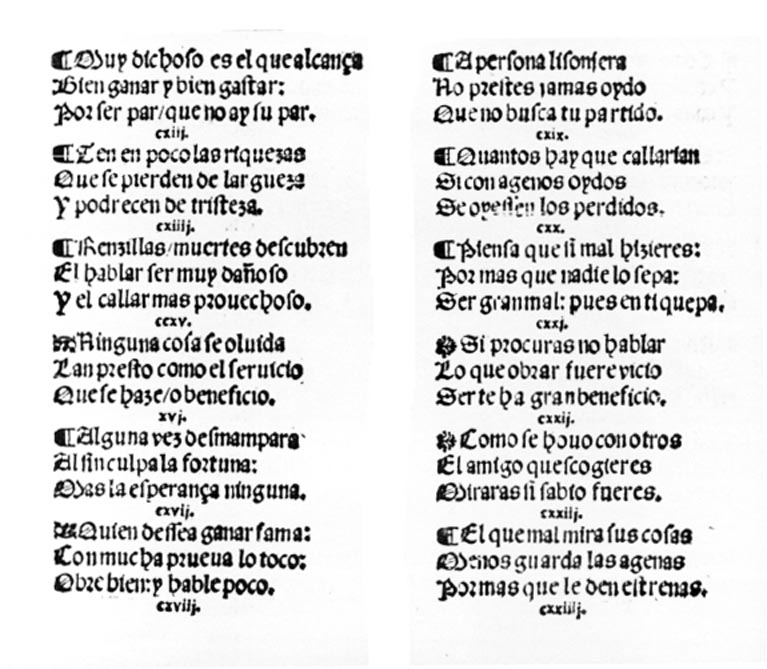 ¶Muy dichoso es el que alcança
Bien ganar y bien gastar:
Por ser par/que no ay su par.
cxiij.
¶Ten en poco las riquezas
Que se pierden de largueza
Y podrecen de tristeza.
cxiiij.
¶Renzillas/muertes descubren
El hablar ser muy dañoso
Y el callar mas prouechoso.
ccxv.
Ninguna cosa se oluida
Tan presto como el seruicio
Que se haze/o beneficio.
xvj.
¶Alguna vez desmampara
Al sin culpa la fortuna:
Mas la esperança ninguna.
cxvij.
Quien dessea ganar fama:
Con mucha prueua lo toco:
Obre bien:y hable poco.
cxviij.
¶A persona lisonjera
No prestes jamas oydo
Que no busca tu partido.
cxix.
¶Quantos hay que callarian
Si con agenos oydos
Se oyessen los perdidos.
cxx.
¶Piensa que si mal hizieres:
Por mas que nadie lo sepa:
Ser gran mal: pues en ti quepa.
cxxj.
Si procuras no hablar
Lo que obrar fuere vicio
Ser te ha gran beneficio.
cxxij.
Como se houo con otros
El amigo quescogieres
Miraras si sabio fueres.
cxxiij.
¶El que mal mira sus cosas
Menos guarda las agenas
Por mas que le den estrenas.
cxxiiij.